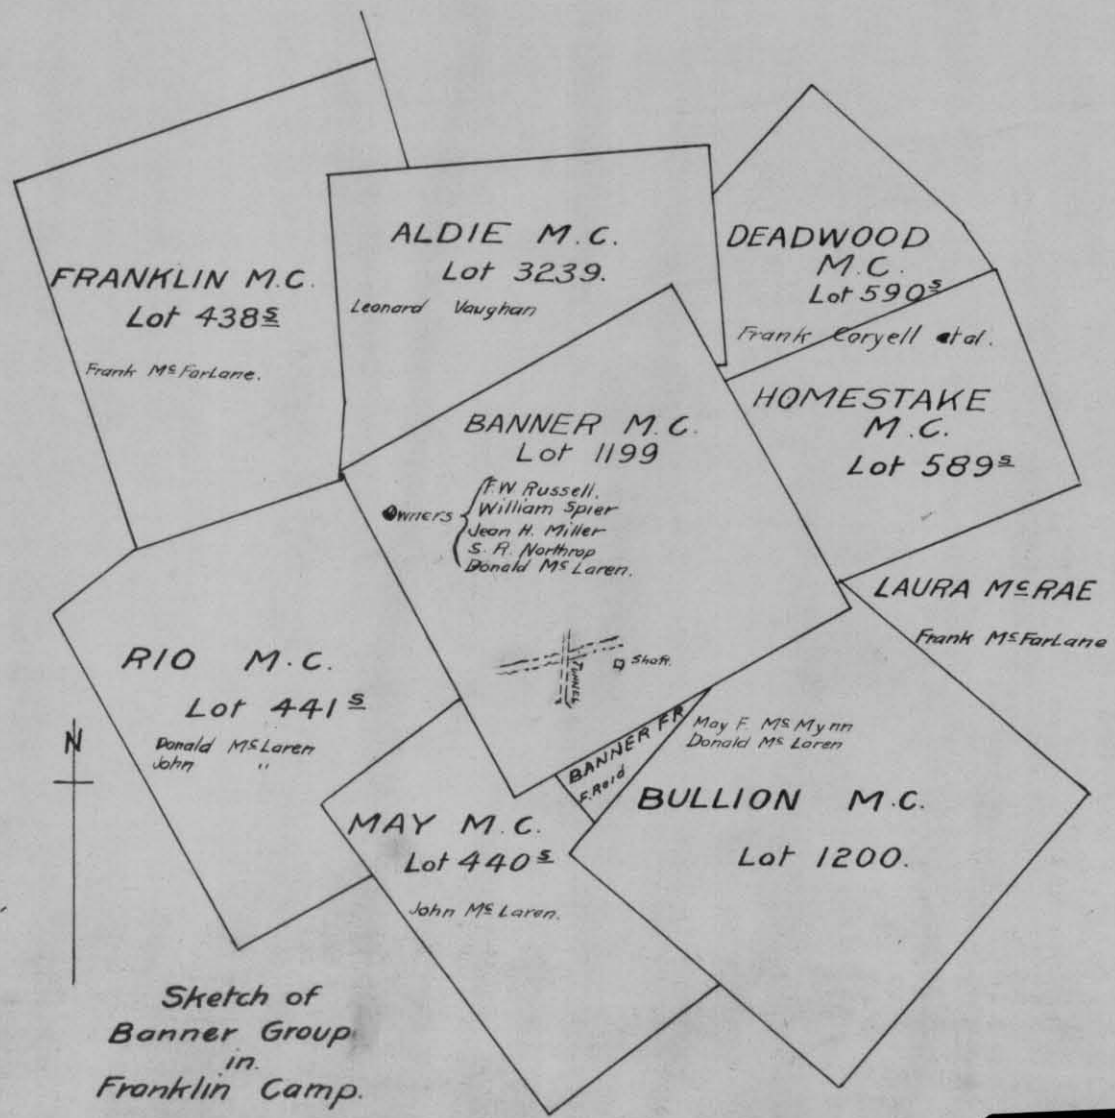 FRANKLIN M.C.
Lot 438ˢ
Frank McFarlane.
ALDIE M.C.
Lot 3239.
Leonard Vaughan
DEADWOOD
M.C.
Lot 590ˢ
Frank Coryell et al.
HOMESTAKE
M.C.
Lot 589ˢ
BANNER M.C.
Lot 1199
Owners
F.W Russell.
William Spier
Jean H. Miller
S. R. Northrop
Donald McLaren.
TUNNEL
Shaft.
LAURA McRAE
Frank McFarlane
RIO M.C.
Lot 441ˢ
Donald McLaren
John "
N
BANNER FR
F. Reid
May F. McMynn
Donald McLaren
BULLION M.C.
Lot 1200.
MAY M.C.
Lot 440ˢ
John McLaren.
Sketch of
Banner Group
in.
Franklin Camp.